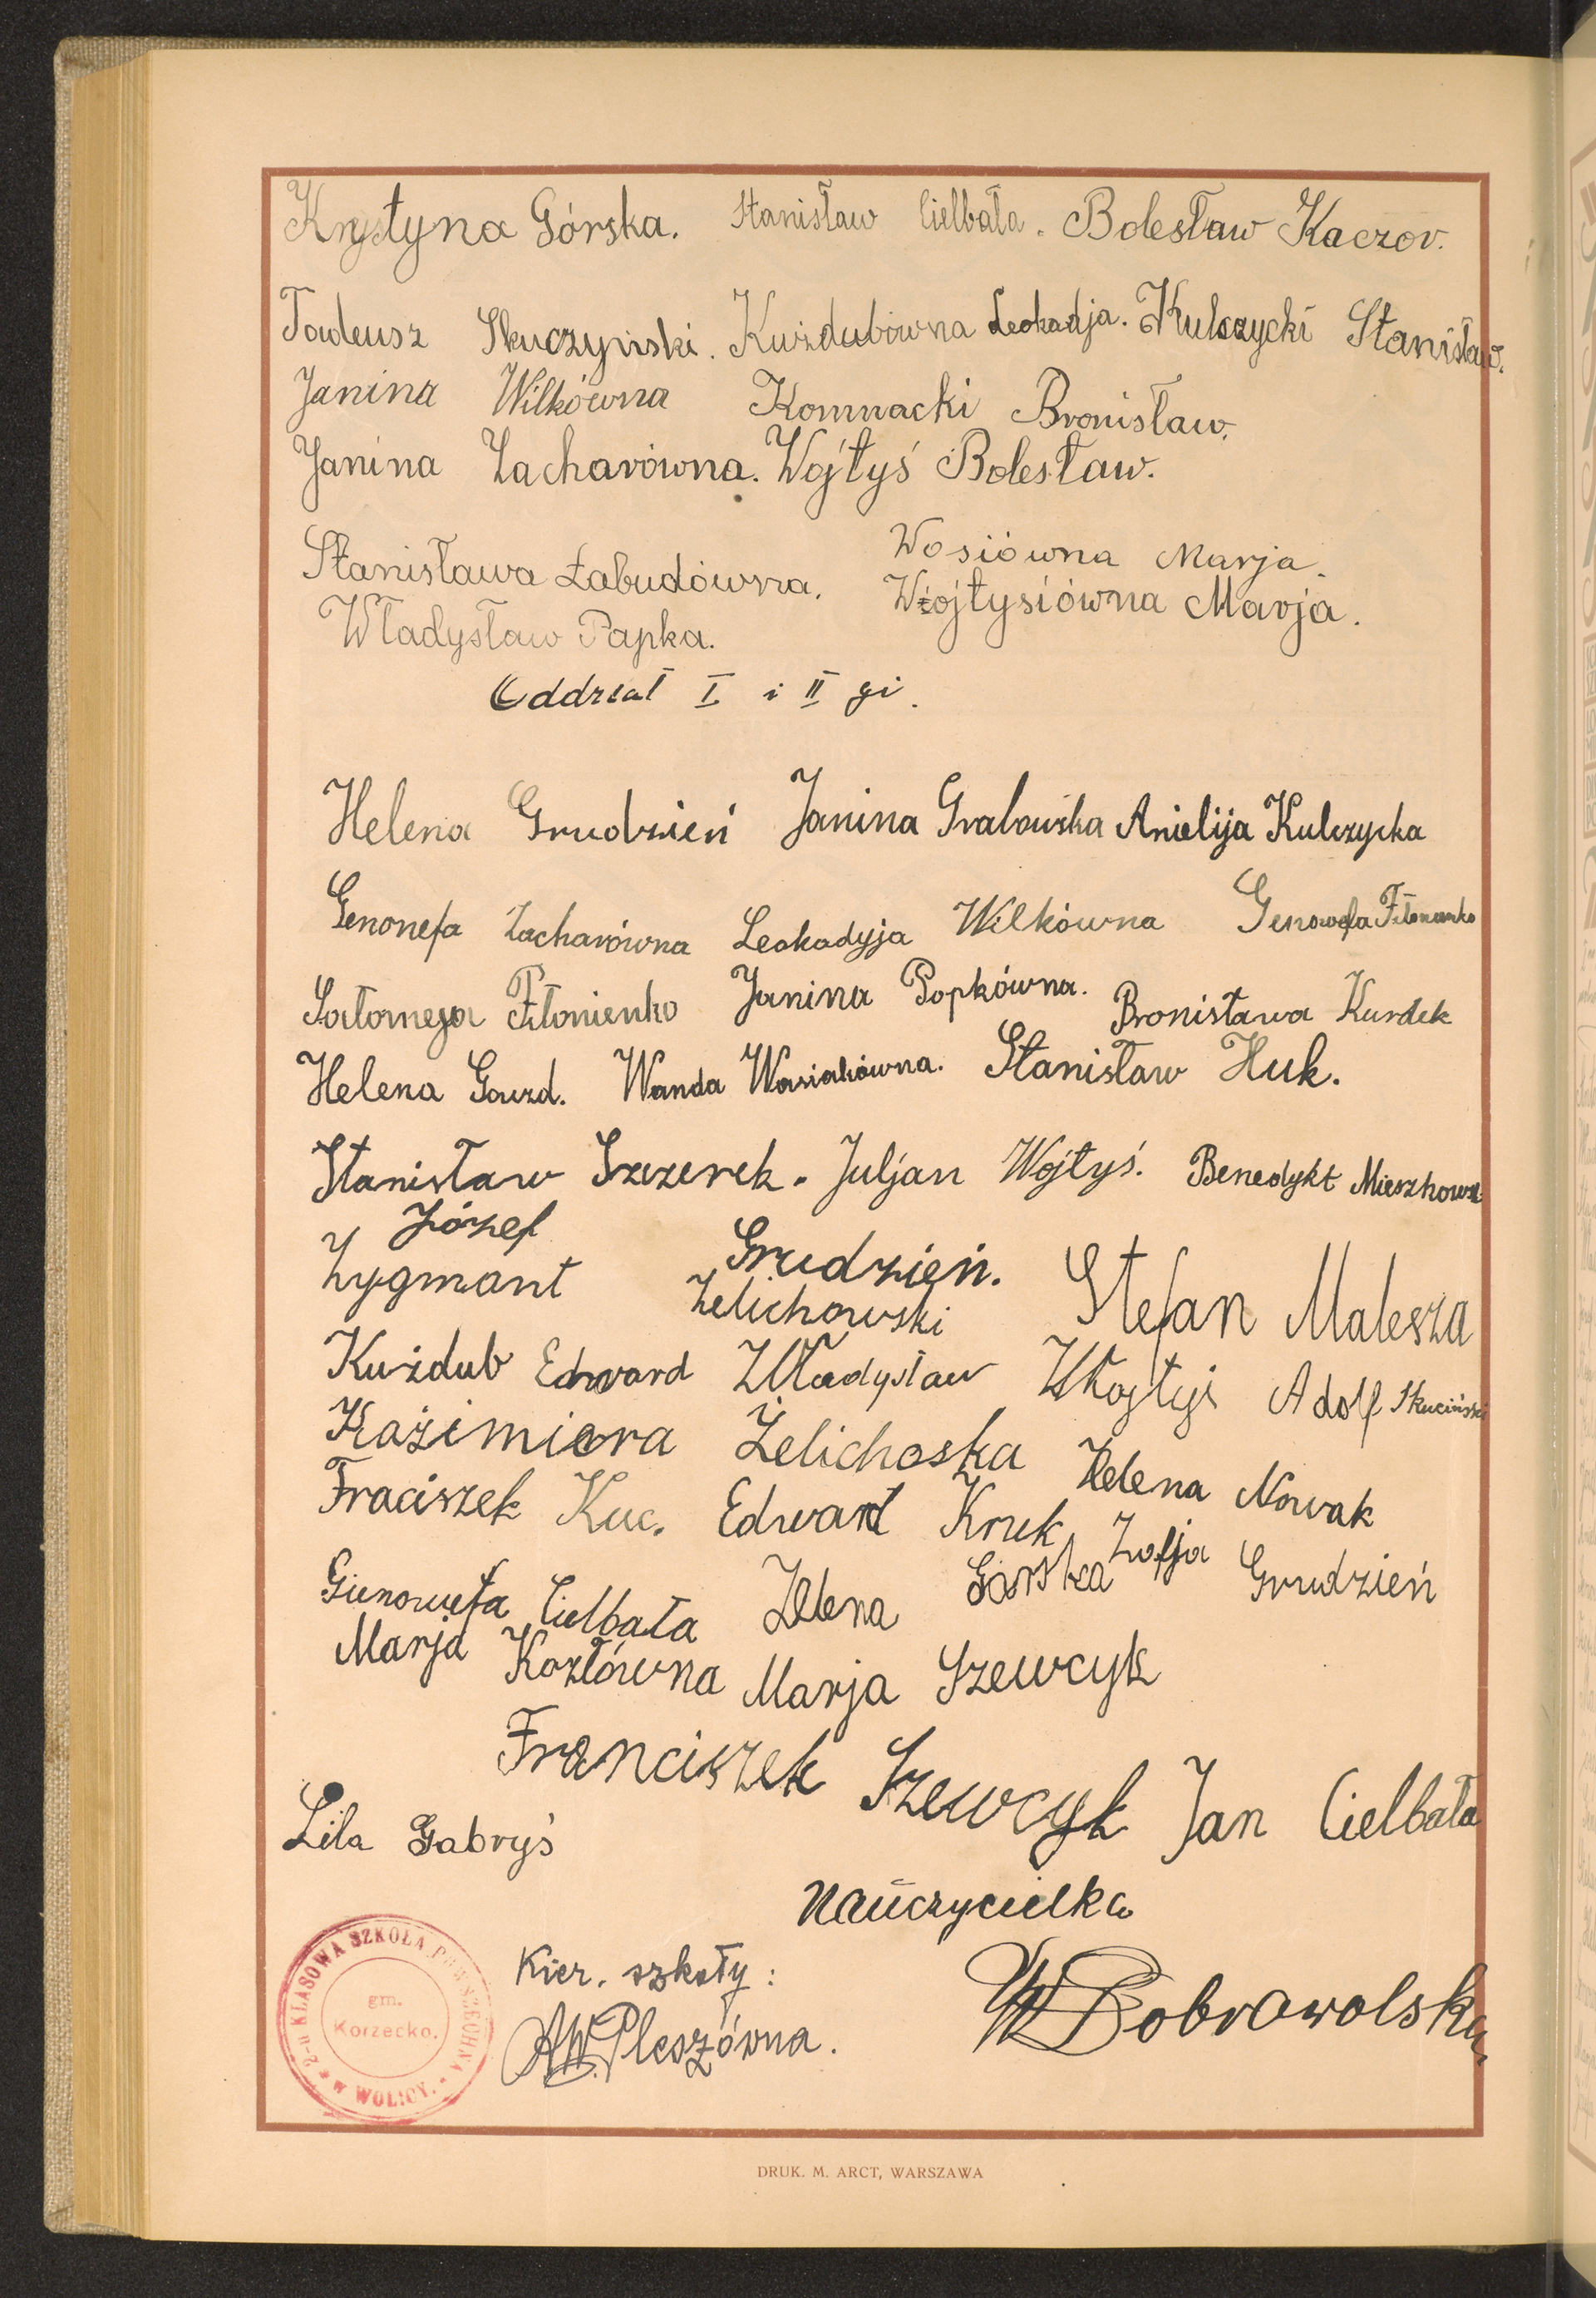 Krystyna Górska. Stanisław Cielbała. Bolesław Kaczor.
Tadeusz Skuczyński. Kuździubówna Leokadja. Kulczycki Stanisław.
Janina Wilkówna Komnacki Bronisław.
Janina Zacharówna. Wojtyś Bolesław.
Wosiówna Marja.
Stanisława Łabudówna. Wójtysiówna Marja.
Władysław Papka.
Oddział I i II gi.
Helena Grudzień Janina Grabowska Anielija Kulczycka
Genonefa Zacharówna Leokadyja Wilkówna Genowefa
Sałomeja Fiłonienko Janina Popkówna. Bronisława Kurdek
Helena Gwzd. Wanda Wosiakówna. Stanisław Huk.
Stanisław Szczerek. Juljan Wojtyś. Benedykt Mieszkows
Józef Grudzień.
Zygmant Zelichowski Stefan Malesza
Kuździub Edward Władysław Wojtyś Adolf Skuciński
Każimiera Żelichoska Helena Nowak
Fraciszek Kuc. Edward Kruk Zofja Grudzień
Gienowefa Cielbała Helena Górska
Marja Kozłówna Marja Szewcyk
Franciszek Szewcyk Jan Cielbała
Lila Gabryś
Nauczycielka
Kier. szkoły:
A.W.Pleszówna. W Dobrowolska
2-u KLASOWA SZKOŁA POWSZECHNA
w WOLICY.
gm.
Korzecko.
DRUK. M. ARCT, WARSZAWA